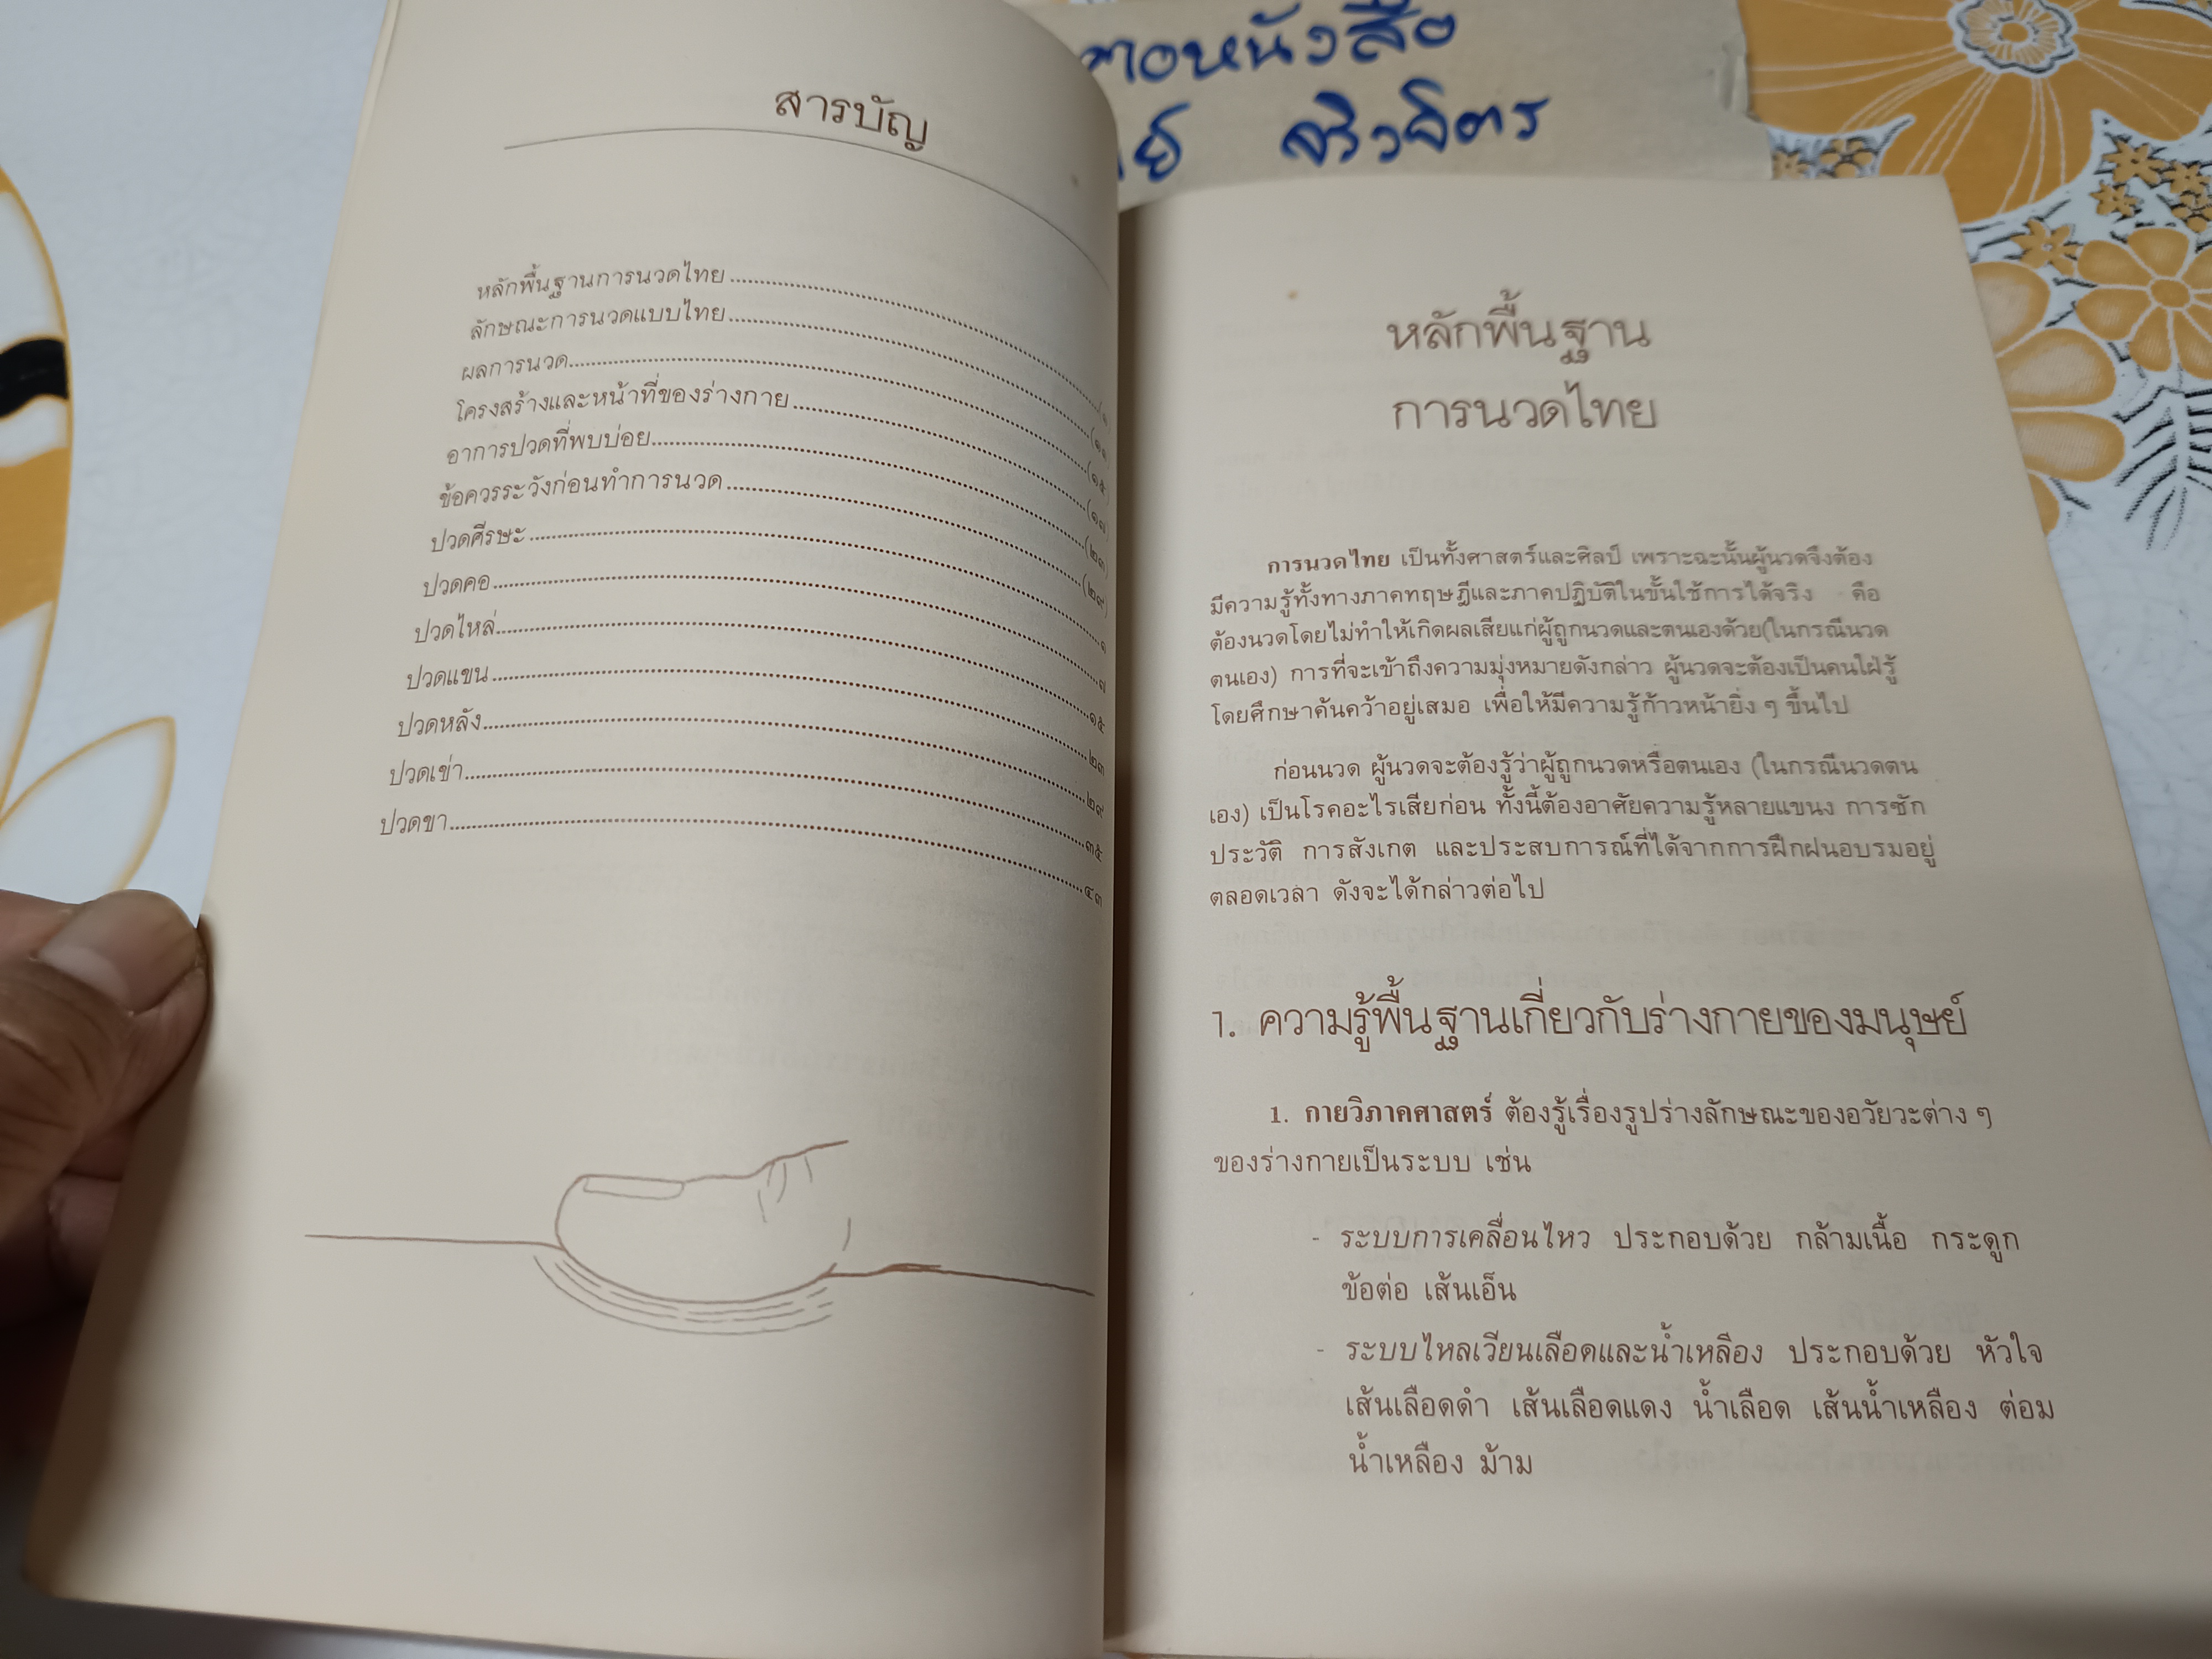 สารบัญ
หลักพื้นฐานการนวดไทย
ลักษณะการนวดแบบไทย
ผลการนวด
โครงสร้างและหน้าที่ของร่างกาย
อาการปวดที่พบบ่อย
ข้อควรระวังก่อนทำการนวด
ปวดศีรษะ
ปวดคอ
ปวดไหล่
ปวดแขน
ปวดหลัง
ปวดเข่า
ปวดขา
หนังสือ
หลักพื้นฐาน
การนวดไทย
การนวดไทย เป็นทั้งศาสตร์และศิลป์ เพราะฉะนั้นผู้นวดจึงต้อง
มีความรู้ทั้งทางภาคทฤษฎีและภาคปฏิบัติในขั้นใช้การได้จริง คือ
ต้องนวดโดยไม่ทำให้เกิดผลเสียแก่ผู้ถูกนวดและตนเองด้วย(ในกรณีนวด
ตนเอง) การที่จะเข้าถึงความมุ่งหมายดังกล่าว ผู้นวดจะต้องเป็นคนใฝ่รู้
โดยศึกษาค้นคว้าอยู่เสมอ เพื่อให้มีความรู้ก้าวหน้ายิ่ง ๆ ขึ้นไป
ก่อนนวด ผู้นวดจะต้องรู้ว่าผู้ถูกนวดหรือตนเอง (ในกรณีนวดตน
เอง) เป็นโรคอะไรเสียก่อน ทั้งนี้ต้องอาศัยความรู้หลายแขนง การซัก
ประวัติ การสังเกต และประสบการณ์ที่ได้จากการฝึกฝนอบรมอยู่
ตลอดเวลา ดังจะได้กล่าวต่อไป
1. ความรู้พื้นฐานเกี่ยวกับร่างกายของมนุษย์
1. กายวิภาคศาสตร์ ต้องรู้เรื่องรูปร่างลักษณะของอวัยวะต่าง ๆ
ของร่างกายเป็นระบบ เช่น
- ระบบการเคลื่อนไหว ประกอบด้วย กล้ามเนื้อ กระดูก
ข้อต่อ เส้นเอ็น
- ระบบไหลเวียนเลือดและน้ำเหลือง ประกอบด้วย หัวใจ
เส้นเลือดดำ เส้นเลือดแดง น้ำเลือด เส้นน้ำเหลือง ต่อม
น้ำเหลือง ม้าม